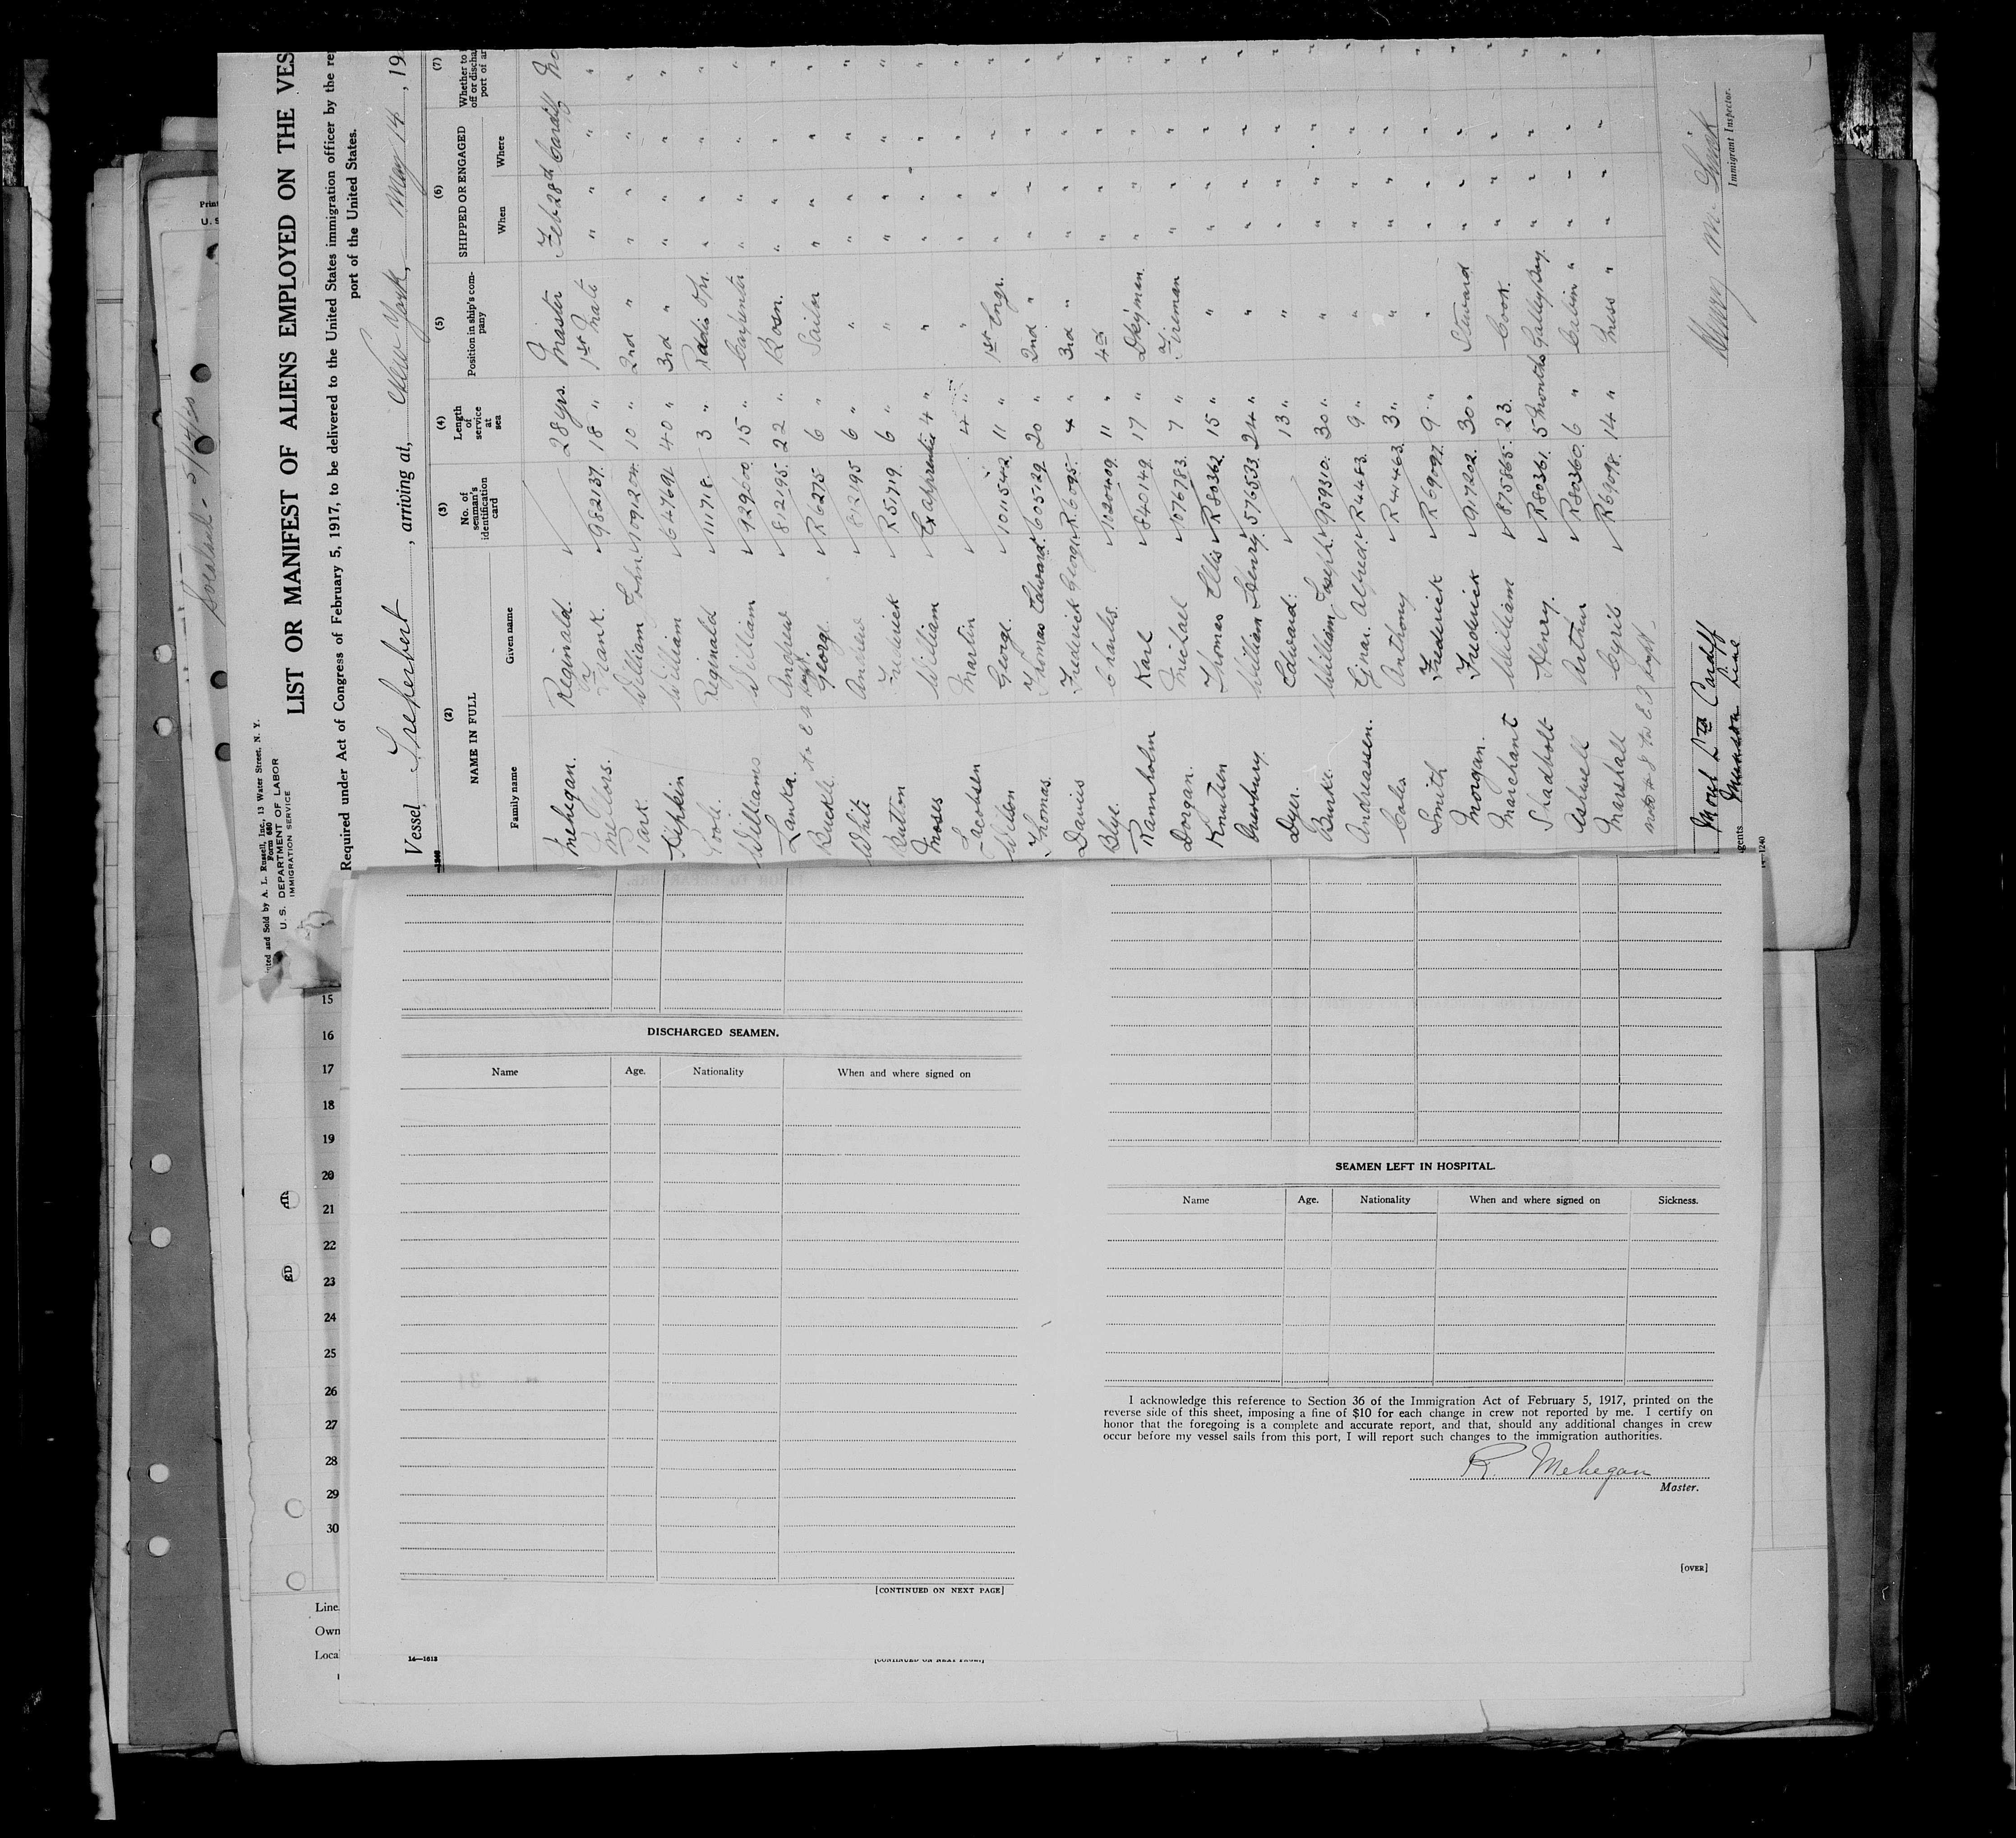 Printed and Sold by A. L. Russell, Inc., 13 Water Street, N. Y.
Form 680
U. S. DEPARTMENT OF LABOR
IMMIGRATION SERVICE
LIST OR MANIFEST OF ALIENS EMPLOYED ON THE VES
Required under Act of Congress of February 5, 1917, to be delivered to the United States immigration officer by the re
port of the United States.
Vessel Treherbert, arriving at, New York, May 14, 19
(2) (3) (4) (5) (6) (7)
NAME IN FULL No. of seaman's identification card Length of service at sea Position in ship's company SHIPPED OR ENGAGED Whether to off or discha port of ar
Family name Given name When Where
Mehegan. Reginald. 28 yrs. Master Feb 28th Cardiff No
Mellors. Frank. 982137. 18 " 1st Mate " " "
Park William John. 109204. 10 " 2nd " " " "
Kipkin William 647691 40 " 3rd " " " "
Reginald 111718 3 " Radio Opr. " " "
Williams William 929600 15 " Carpenter " " "
Lanka. Andrew 812195. 22 " Bosn. " " "
Buckle George. R6275 6 " Sailor " " "
White Andrew 812195 6 " " " " "
Button Frederick R5719. 6 " " " " "
Moses William Ex apprentice 4 " " " " "
Jacobsen Martin 4 " " " " "
Wilson George. 1011542. 11 " 1st Engr. " " "
Thomas. Thomas Edward. 605129. 20 " 2nd " " " "
Davis Frederick George R6095. 4 " 3rd " " " "
Blye. Charles. 1102409. 11 " 4th " " "
Rannholm Karl 840149. 17 " Dkyman. " " "
Dorgan. Michael 1076783. 7 " Fireman " " "
Knutsen Thomas Ellis R80362. 15 " " " " "
Overbury. William Henry. 576533. 24 " " " " "
Dyer. Edward. 13 " " " " "
Burke. William Joseph. 959310. 30 " " " " "
Andreassen. Einar Alfred. R4483. 9 " " " " "
Coles Anthony R44463. 3 " " " " "
Smith Frederick R69097. 9 " " " " "
Morgan. Frederick 917202. 30 " Steward " " "
Marchant William 875865. 23. Cook. " " "
Shadbolt Henry. R80361. 5 Months Galley Boy. " " "
Ashuell Arthur R80360. 6 " Cabin " " " "
Marshall Cyris R69098. 14 " Mess " " " "
Mord Ltd Cardiff
Munson Line
Immigrant Inspector.
14—1240
15
16
17
18
19
20
21
22
23
24
25
26
27
28
29
30
Line
Own
Loca
DISCHARGED SEAMEN.
Name Age. Nationality When and where signed on
[CONTINUED ON NEXT PAGE]
14—1613
[CONTINUED ON NEXT PAGE]
SEAMEN LEFT IN HOSPITAL.
Name Age. Nationality When and where signed on Sickness.
I acknowledge this reference to Section 36 of the Immigration Act of February 5, 1917, printed on the
reverse side of this sheet, imposing a fine of $10 for each change in crew not reported by me. I certify on
honor that the foregoing is a complete and accurate report, and that, should any additional changes in crew
occur before my vessel sails from this port, I will report such changes to the immigration authorities.
R. Mehegan
Master.
[OVER]